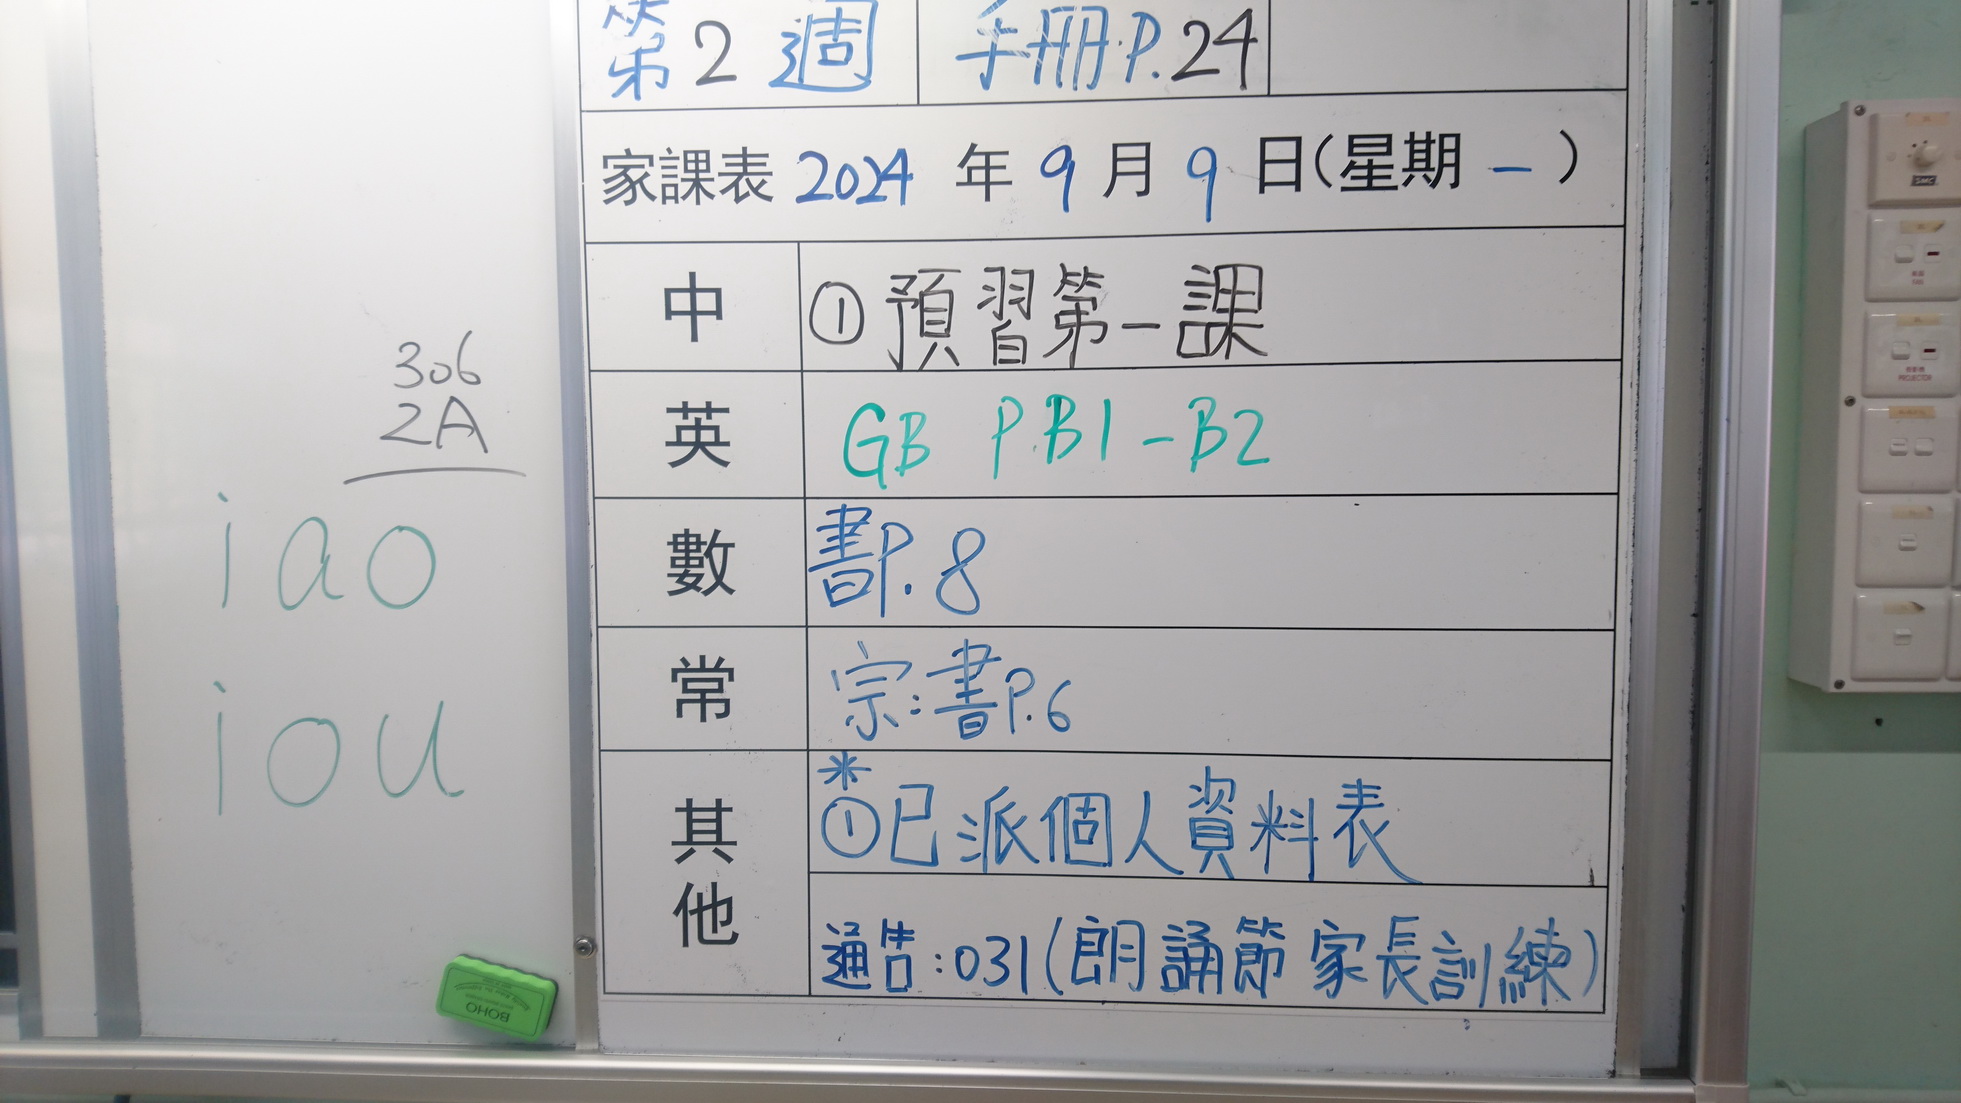 第2週 手冊P.24
家課表 2024 年 9 月 9 日(星期 一 )
中 ①預習第一課
英 GB P.B1-B2
數 書P.8
常 宗:書P.6
其他 *①已派個人資料表
通告:031(朗誦節家長訓練)
306
2A
iao
iou
BOHO